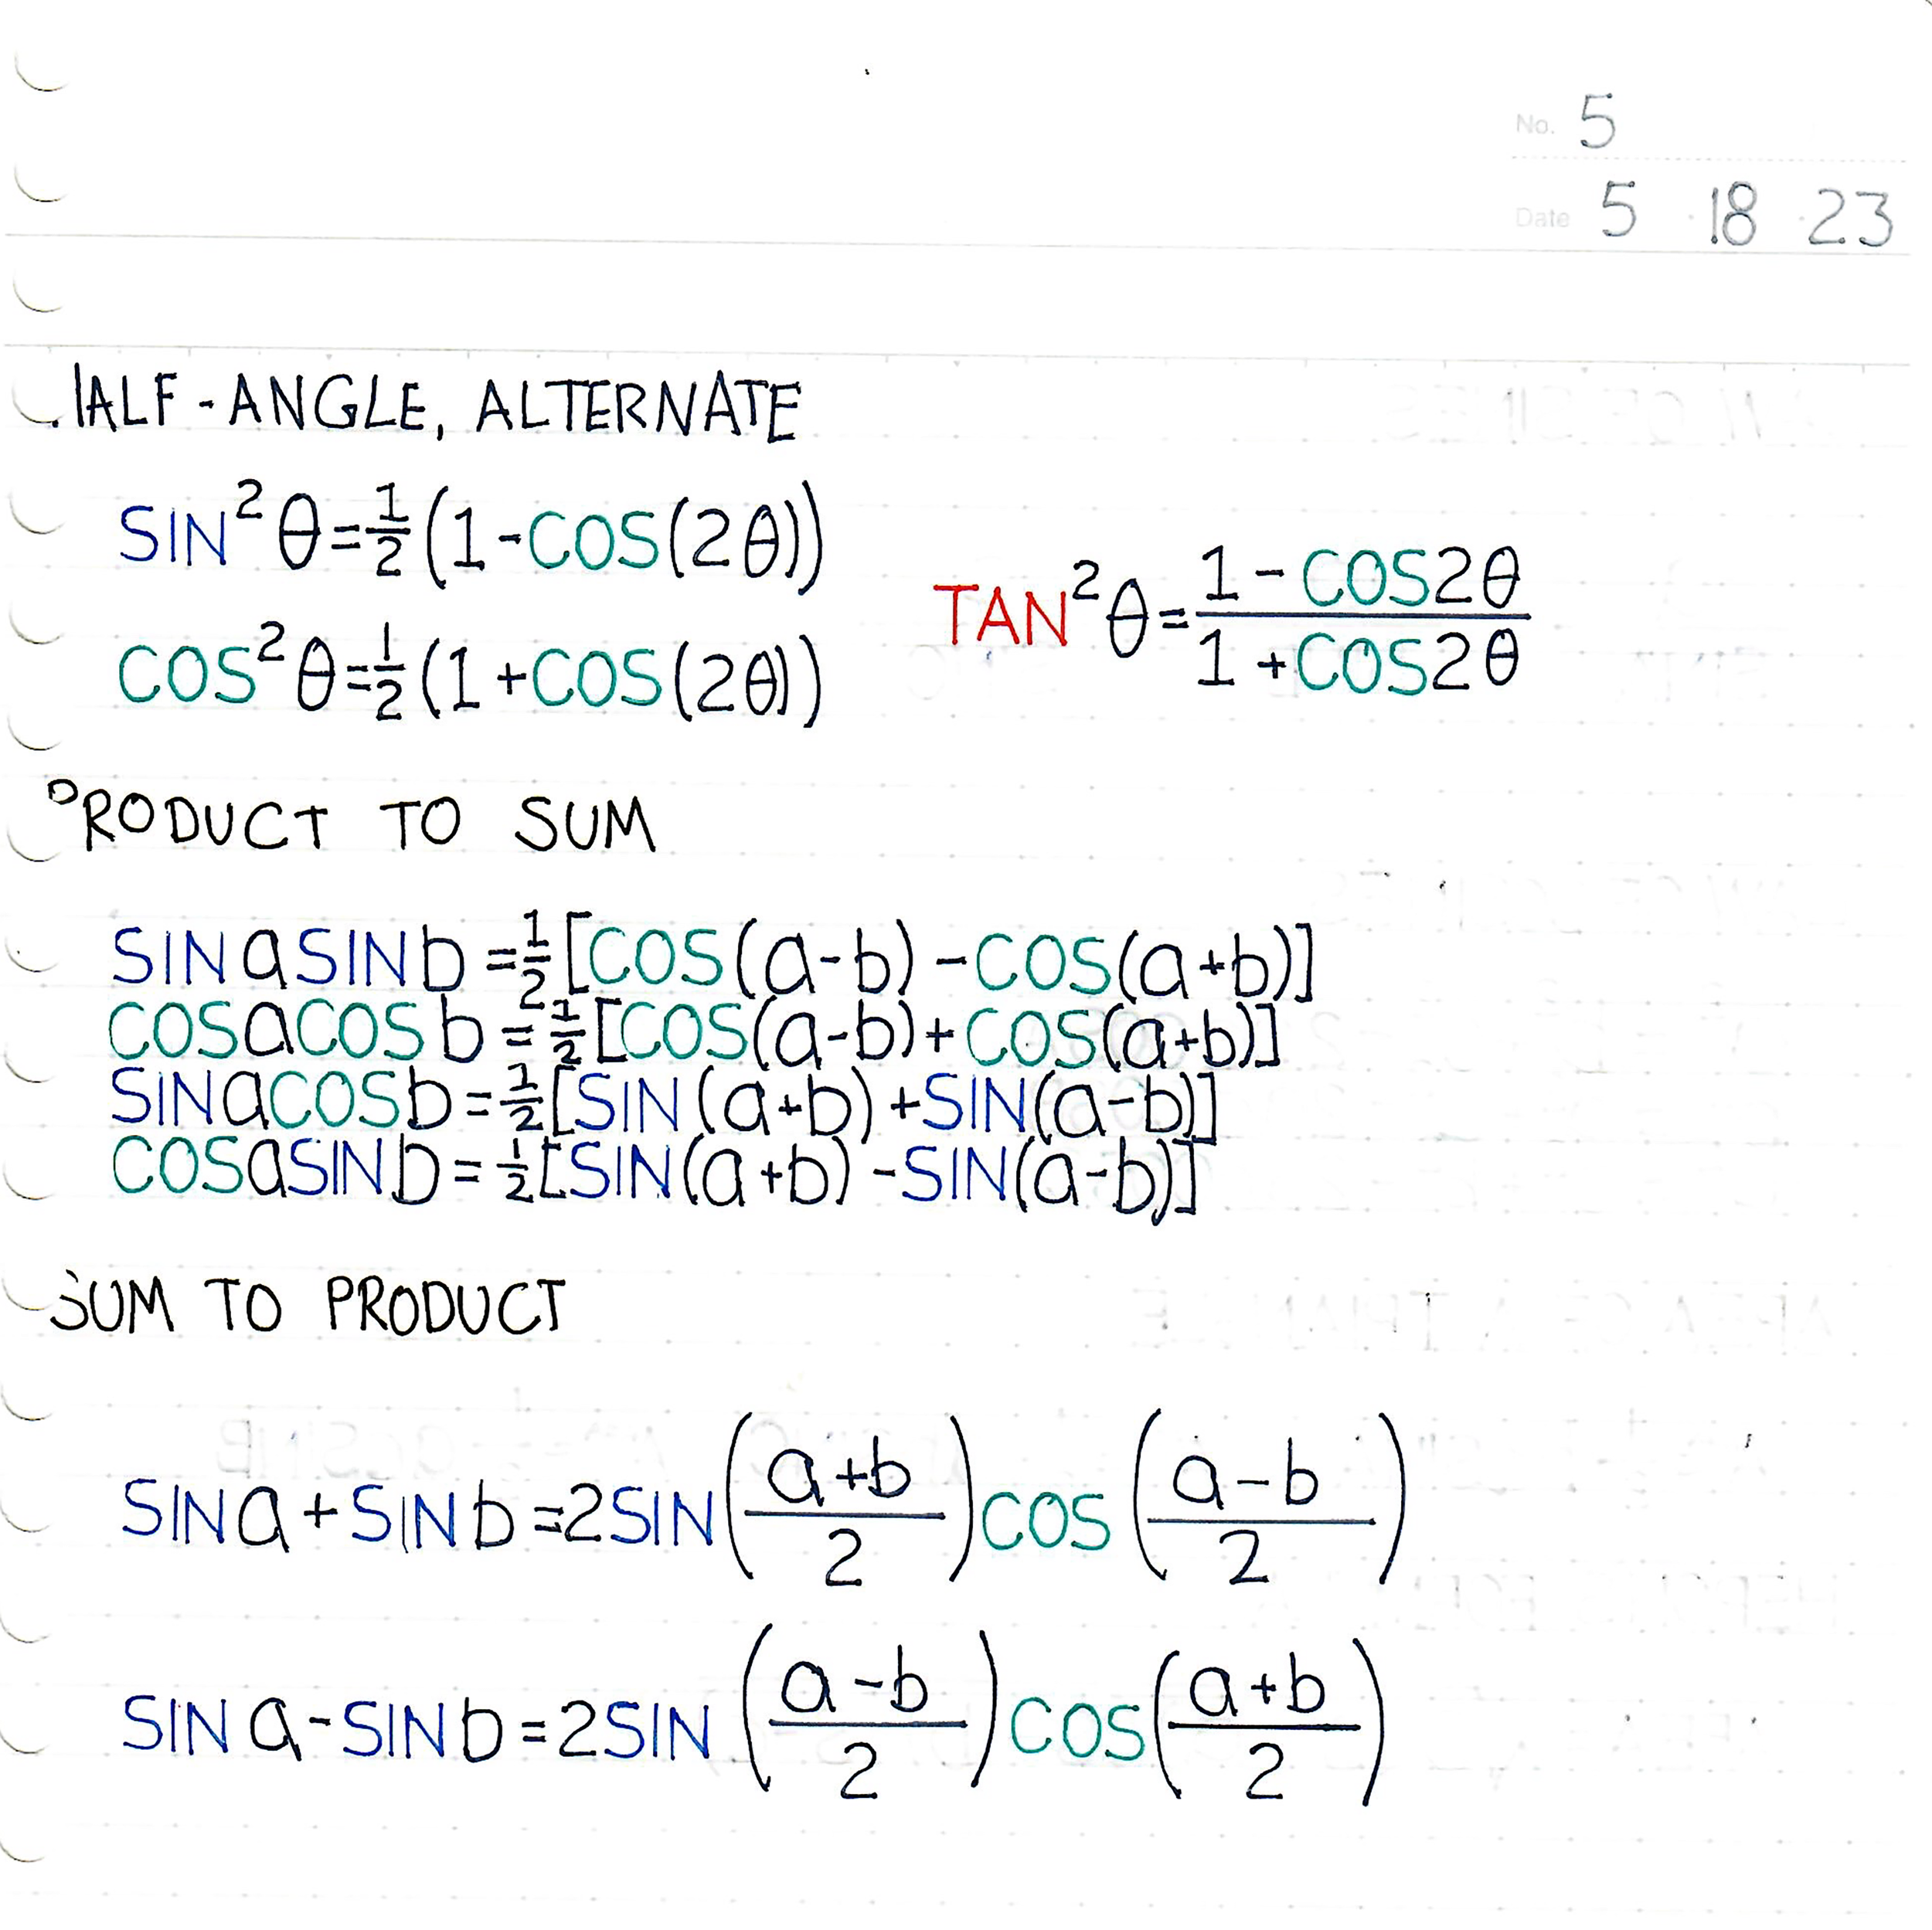 No. 5
Date 5 · 18 · 23
HALF-ANGLE, ALTERNATE
SIN²θ=½(1-COS(2θ))
TAN²θ=(1-COS2θ)/(1+COS2θ)
COS²θ=½(1+COS(2θ))
PRODUCT TO SUM
SINaSINb=½[COS(a-b)-COS(a+b)]
COSaCOSb=½[COS(a-b)+COS(a+b)]
SINaCOSb=½[SIN(a+b)+SIN(a-b)]
COSaSINb=½[SIN(a+b)-SIN(a-b)]
SUM TO PRODUCT
SINa+SINb=2SIN((a+b)/2)COS((a-b)/2)
SINa-SINb=2SIN((a-b)/2)COS((a+b)/2)